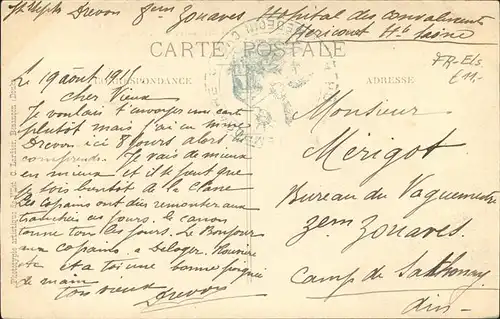 Drevon 3em Zouaves Hopital des convalescents
Héricourt Hte Saône
CARTE POSTALE
CORRESPONDANCE
ADRESSE
FR-Els
£11,-
Le 19 août 1916
Cher Vieux
Je voulais t'envoyer une carte
plutôt mais j'ai eu mime
Drevon ici 8 jours alors tu
comprends. Je vais de mieux
en mieux et il se peut que
je sois bientôt a la C
les copains ont dû remonter aux
tranchées ces jours. le canon
tonne tous les jours. Le Bonjour
aux copains. a Deloger. Rouvière
etc et a toi une bonne poignée
de main
ton vieux
Drevon
Monsieur
Mérigot
Bureau du Vaguemestre
3em Zouaves
Camp de Sathonay
Ain
Phototypie artistique